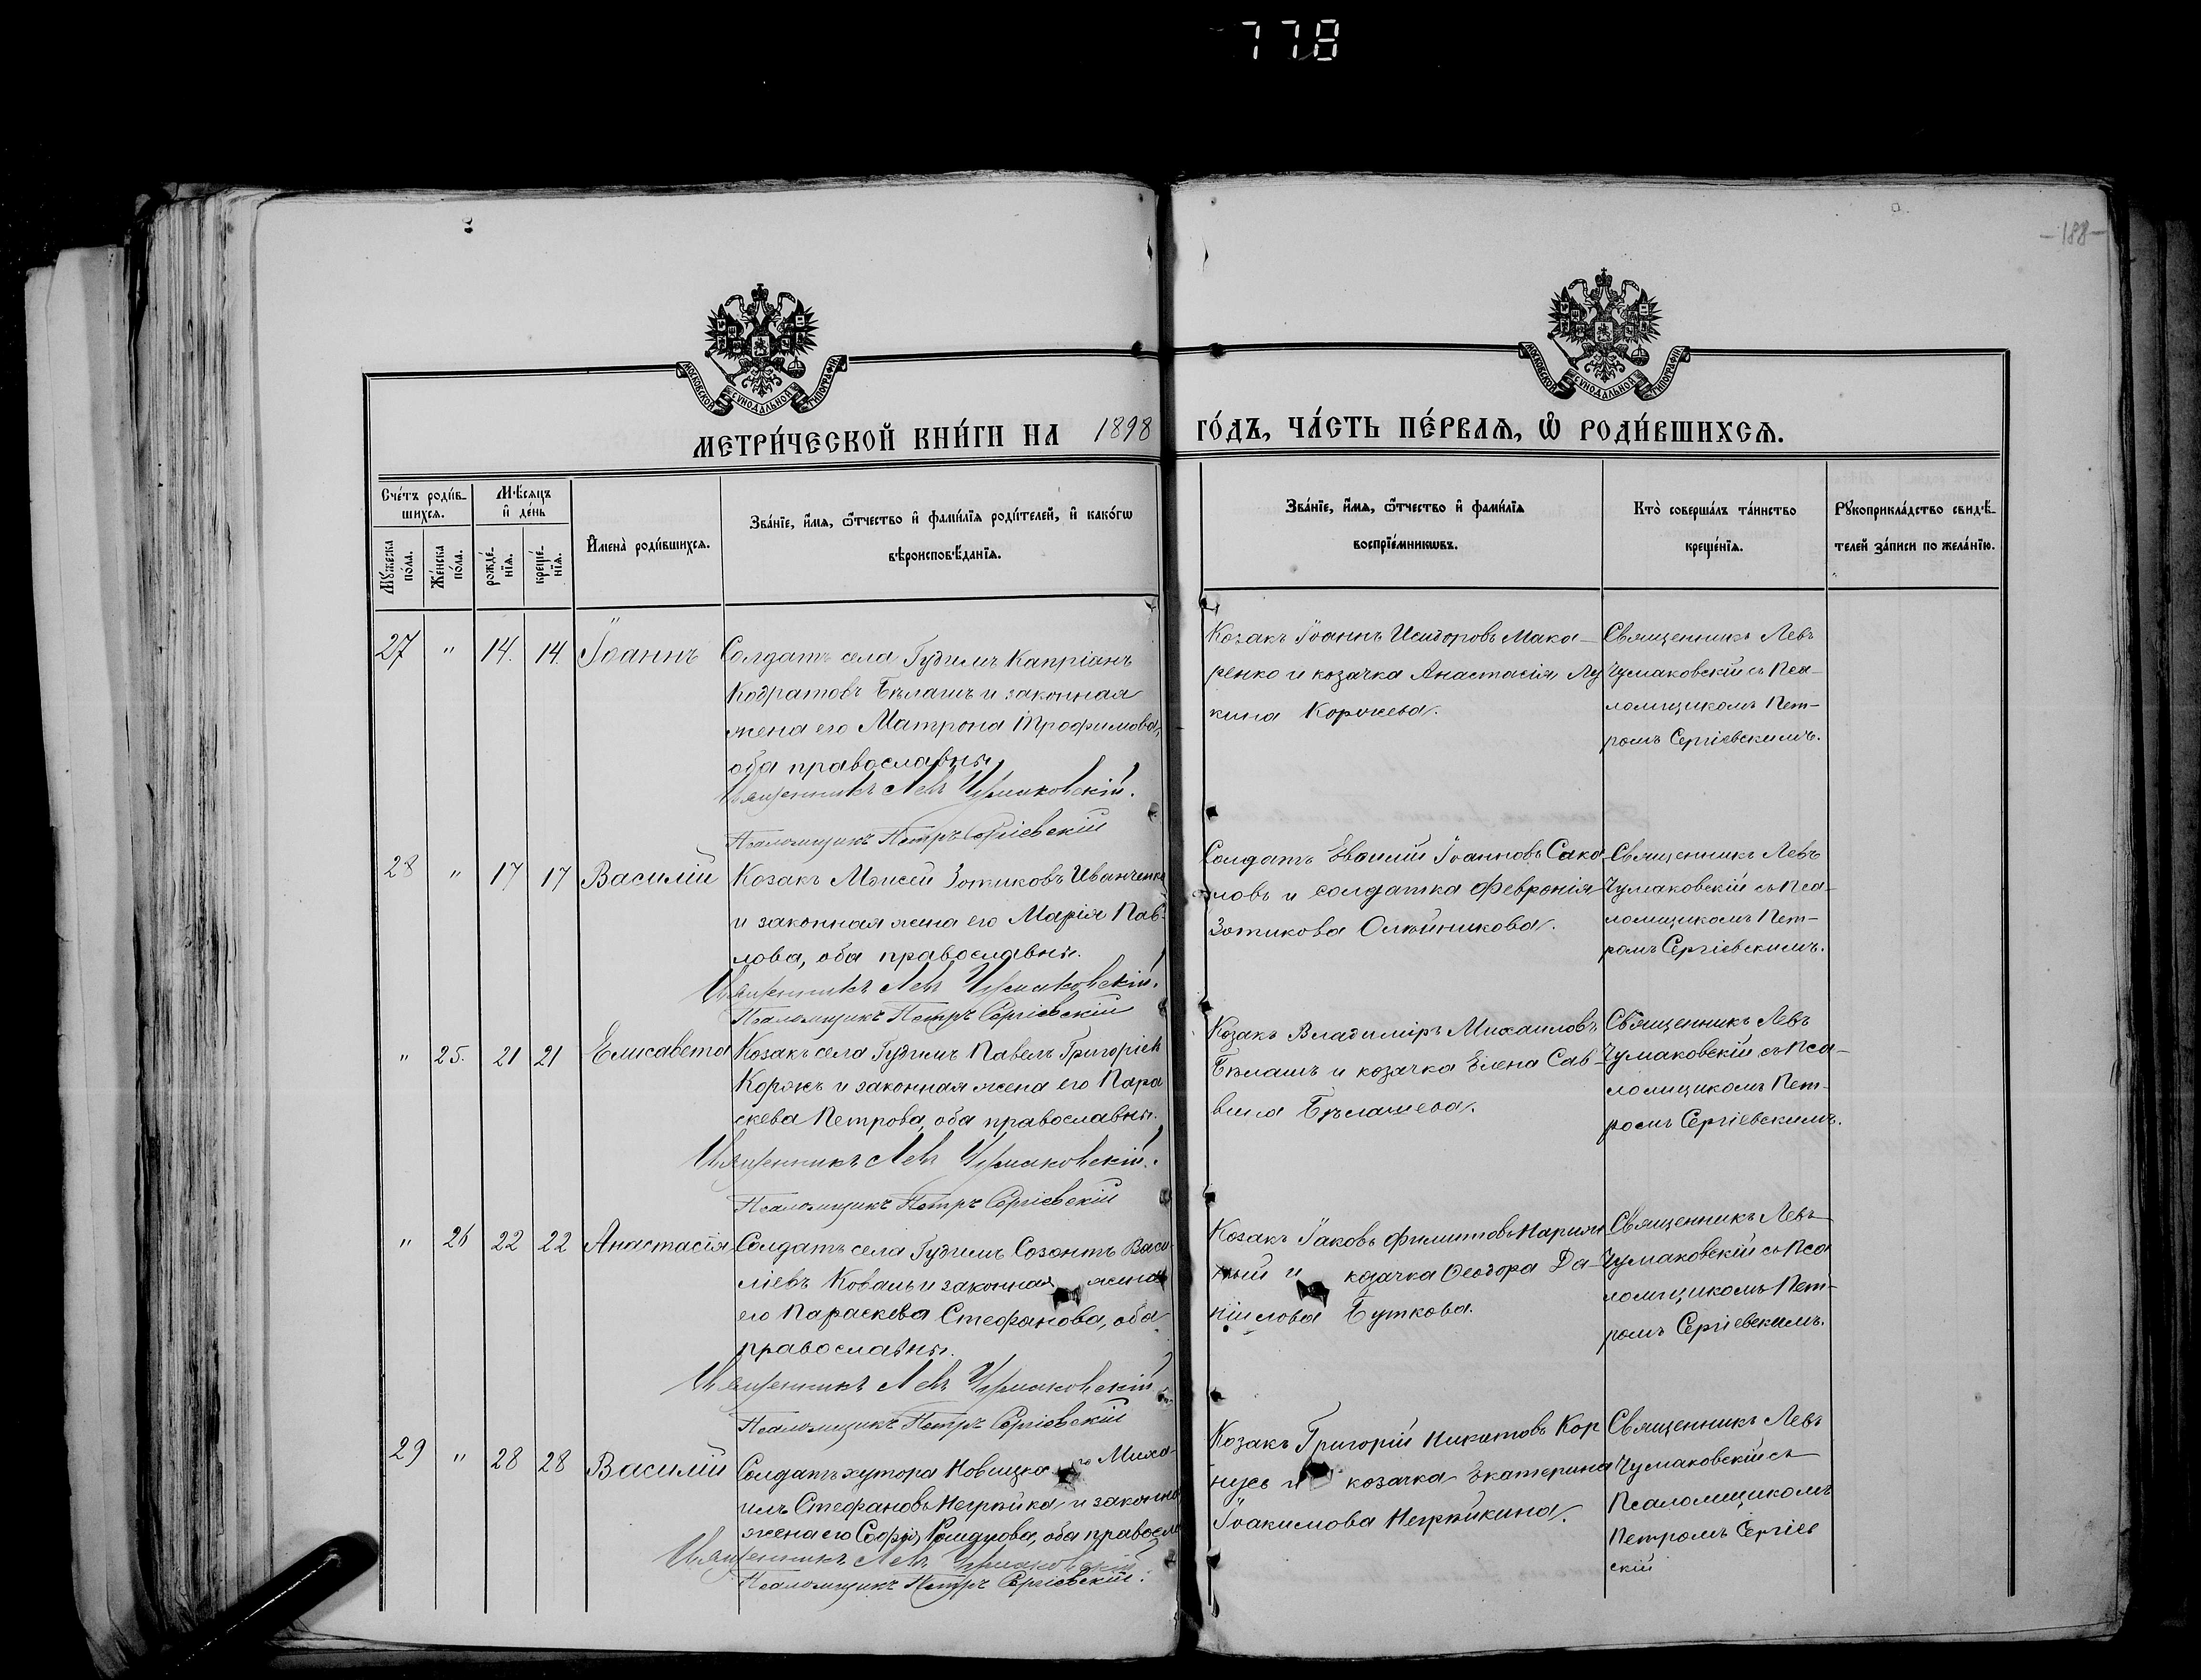 778
-188-
МОСКОВСКОЙ СѴНОДАЛЬНОЙ ТИПОГРАФІИ
МОСКОВСКОЙ СѴНОДАЛЬНОЙ ТИПОГРАФІИ
МЕТРИ́ЧЕСКОЙ КНИ́ГИ НА 1898 ГО́ДЪ, ЧА́СТЬ ПЕ́РВАѦ, Ѽ РОДИ́ВШИХСѦ.
Сче́тъ роди́в-
шихсѧ.
Мꙋ́жеска
по́ла.
Же́нска
по́ла.
Мѣ́сѧцъ
и҆ де́нь
рожде́-
нїѧ.
креще́-
нїѧ.
И҆мена̀ роди́вшихсѧ.
Зва́нїе, и҆́мѧ, ѻ҆́тчество и҆ фами́лїѧ роди́телей, и҆ како́гѡ
вѣроисповѣ́данїѧ.
Зва́нїе, и҆́мѧ, ѻ҆́тчество и҆ фами́лїѧ
воспрїе́мникѡвъ.
Кто̀ соверша́лъ та́инство
креще́нїѧ.
Рꙋкоприкла́дство свидѣ́-
телей за́писи по жела́нїю.
27 " 14. 14. Іоаннъ
Солдатъ села Гудимъ Капріанъ
Кодратовъ Бѣлашъ и законная
жена его Матрона Трофимова,
оба православны
Священникъ Левъ Чумаковскій.
Псаломщикъ Петръ Сергіевскій
Козакъ Іоаннъ Исидоровъ Мака-
ренко и козачка Анастасія Лу
кина
Священникъ Левъ
Чумаковскій съ Пса-
ломщикомъ Пет-
ромъ Сергіевскимъ.
28 " 17 17 Василій
Козакъ Моисей Зотиковъ Иванченко
и законная жена его Марія Пав-
лова, оба православны.
Священникъ Левъ Чумаковскій.
Псаломщикъ Петръ Сергіевскій
Солдатъ Іоанновъ Сако
ловъ и солдатка Февронія
Зотикова Олѣйникова.
Священникъ Левъ
Чумаковскій съ Пса-
ломщикомъ Пет-
ромъ Сергіевскимъ.
" 25. 21 21 Елисавета
Козакъ села Гудимъ Павелъ Григоріев
Коржъ и законная жена его Пара
скева Петрова, оба православны.
Священникъ Левъ Чумаковскій.
Псаломщикъ Петръ Сергіевскій
Козакъ Владиміръ Михаиловъ
Бѣлашъ и козачка Елена Сав-
вина Бѣлашева.
Священникъ Левъ
Чумаковскій съ Пса-
ломщикомъ Пет-
ромъ Сергіевскимъ.
" 26 22 22 Анастасія
Солдатъ села Гудимъ Созонтъ Васи-
ліевъ Коваль и законная жена
его Параскева Стефанова, оба
православны.
Священникъ Левъ Чумаковскій
Псаломщикъ Петръ Сергіевскій
Козакъ Іаковъ Филиповъ
и козачка Ѳеодора Да-
ніилова Буткова.
Священникъ Левъ
Чумаковскій съ Пса
ломщикомъ Пет-
ромъ Сергіевскимъ.
29 " 28 28 Василій
Солдатъ хутора Миха-
илъ Стефановъ Негрѣйка и законна
жена его оба правосла
Священникъ Левъ Чумаковскій
Псаломщикъ Петръ Сергіевскій.
Козакъ Григорій Никитовъ Кор
и козачка Екатерина
Іоакимова Негрѣйкина.
Священникъ Левъ
Чумаковскій съ
Псаломщикомъ
Петромъ Сергіев
скій